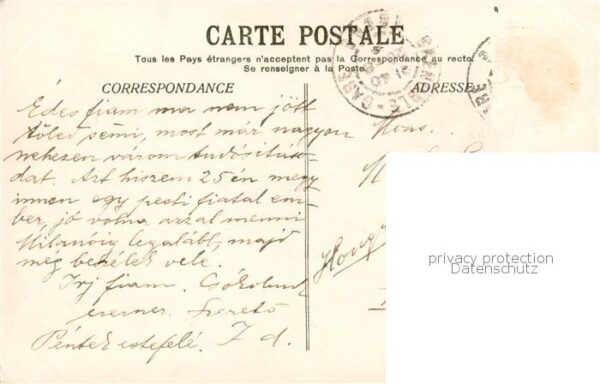 CARTE POSTALE
Tous les Pays étrangers n'acceptent pas la Correspondance au recto.
Se renseigner à la Poste.
CORRESPONDANCE
ADRESSE
Édes fiam ma nem jött
Tőled semi, most már nagyon
nehezen várom tudósitás
dat. Azt hiszem 25 én megy
innen egy pesti fiatal em
ber, jó volna azzal menni
Milanóig legalább, majd
még beszélek vele.
Irj fiam. Csókolund
ezerszer. Szerető
Péntek estefelé. I d.
Mons.
Hong
privacy protection
Datenschutz